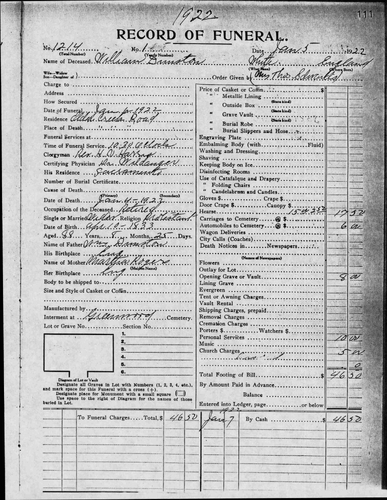 1922
111
RECORD OF FUNERAL.
No. 1214
(Total Number)
No.
(Yearly Number)
Date Jan 5 1922
Name of Deceased William Dunston White England
(What Race) (Where Born)
Wife—Widow
Son—Daughter of
Order Given by Mrs Thos
Charge to
Address
How Secured
Date of Funeral Jan 6 1922
Residence Road
Place of Death
Funeral Services at
Time of Funeral Service 10.30 O'clock
Clergyman Rev. H.D.
Certifying Physician Dr.
His Residence
Number of Burial Certificate
Cause of Death
Date of Death Jan 4 1922
Occupation of the Deceased Retired
Single or Married Religion Protestant
Date of Birth April 9 1833
Aged 88 Years 8 Months 25 Days
Name of Father Wm Dunston
His Birthplace Eng
Name of Mother Martha Rogers
(Maiden Name)
Her Birthplace Eng
Body to be shipped to
Size and Style of Casket or Coffin
Manufactured by
Interment at Greenwood Cemetery.
Lot or Grave No. Section No.
Diagram of Lot or Vault
Designate all Graves in Lot with Numbers (1, 2, 3, 4, etc.) and mark space for this Funeral with a cross (+).
Designate place for Monument with a small square
Use space to right of Diagram for names of those buried in Lot.
Price of Casket or Coffin
" Metallic Lining
(State kind)
" Outside Box
(State kind)
" Grave Vault
(State kind)
" Burial Robe
(State kind)
" Burial Slippers and Hose
Engraving Plate
Embalming Body (with Fluid)
Washing and Dressing
Shaving
Keeping Body on Ice
Disinfecting Rooms
Use of Catafalque and Drapery
" Folding Chairs
" Candelabrum and Candles
Gloves $ Crape $
Door Crape $ Canopy $
Hearse 17 50
Carriages to Cemetery @
Automobiles to Cemetery @ 6 00
Wagon Deliveries @
City Calls (Coaches) @
Death Notices in Newspapers
(Names of Newspapers)
Flowers
Outlay for Lot
Opening Grave or Vault 8 00
Lining Grave
Evergreen
Tent or Awning Charges
Vault Rental
Shipping Charges, prepaid
Removal Charges
Cremation Charges
Porters $ Watchers $
Personal Services 10 00
Music
Church Charges 5 00
Total Footing of Bill $ 46 50
By Amount Paid in Advance
Balance
Entered into Ledger, page or below.
To Funeral Charges $ 46 50 Jan 7 By Cash $ 46 50